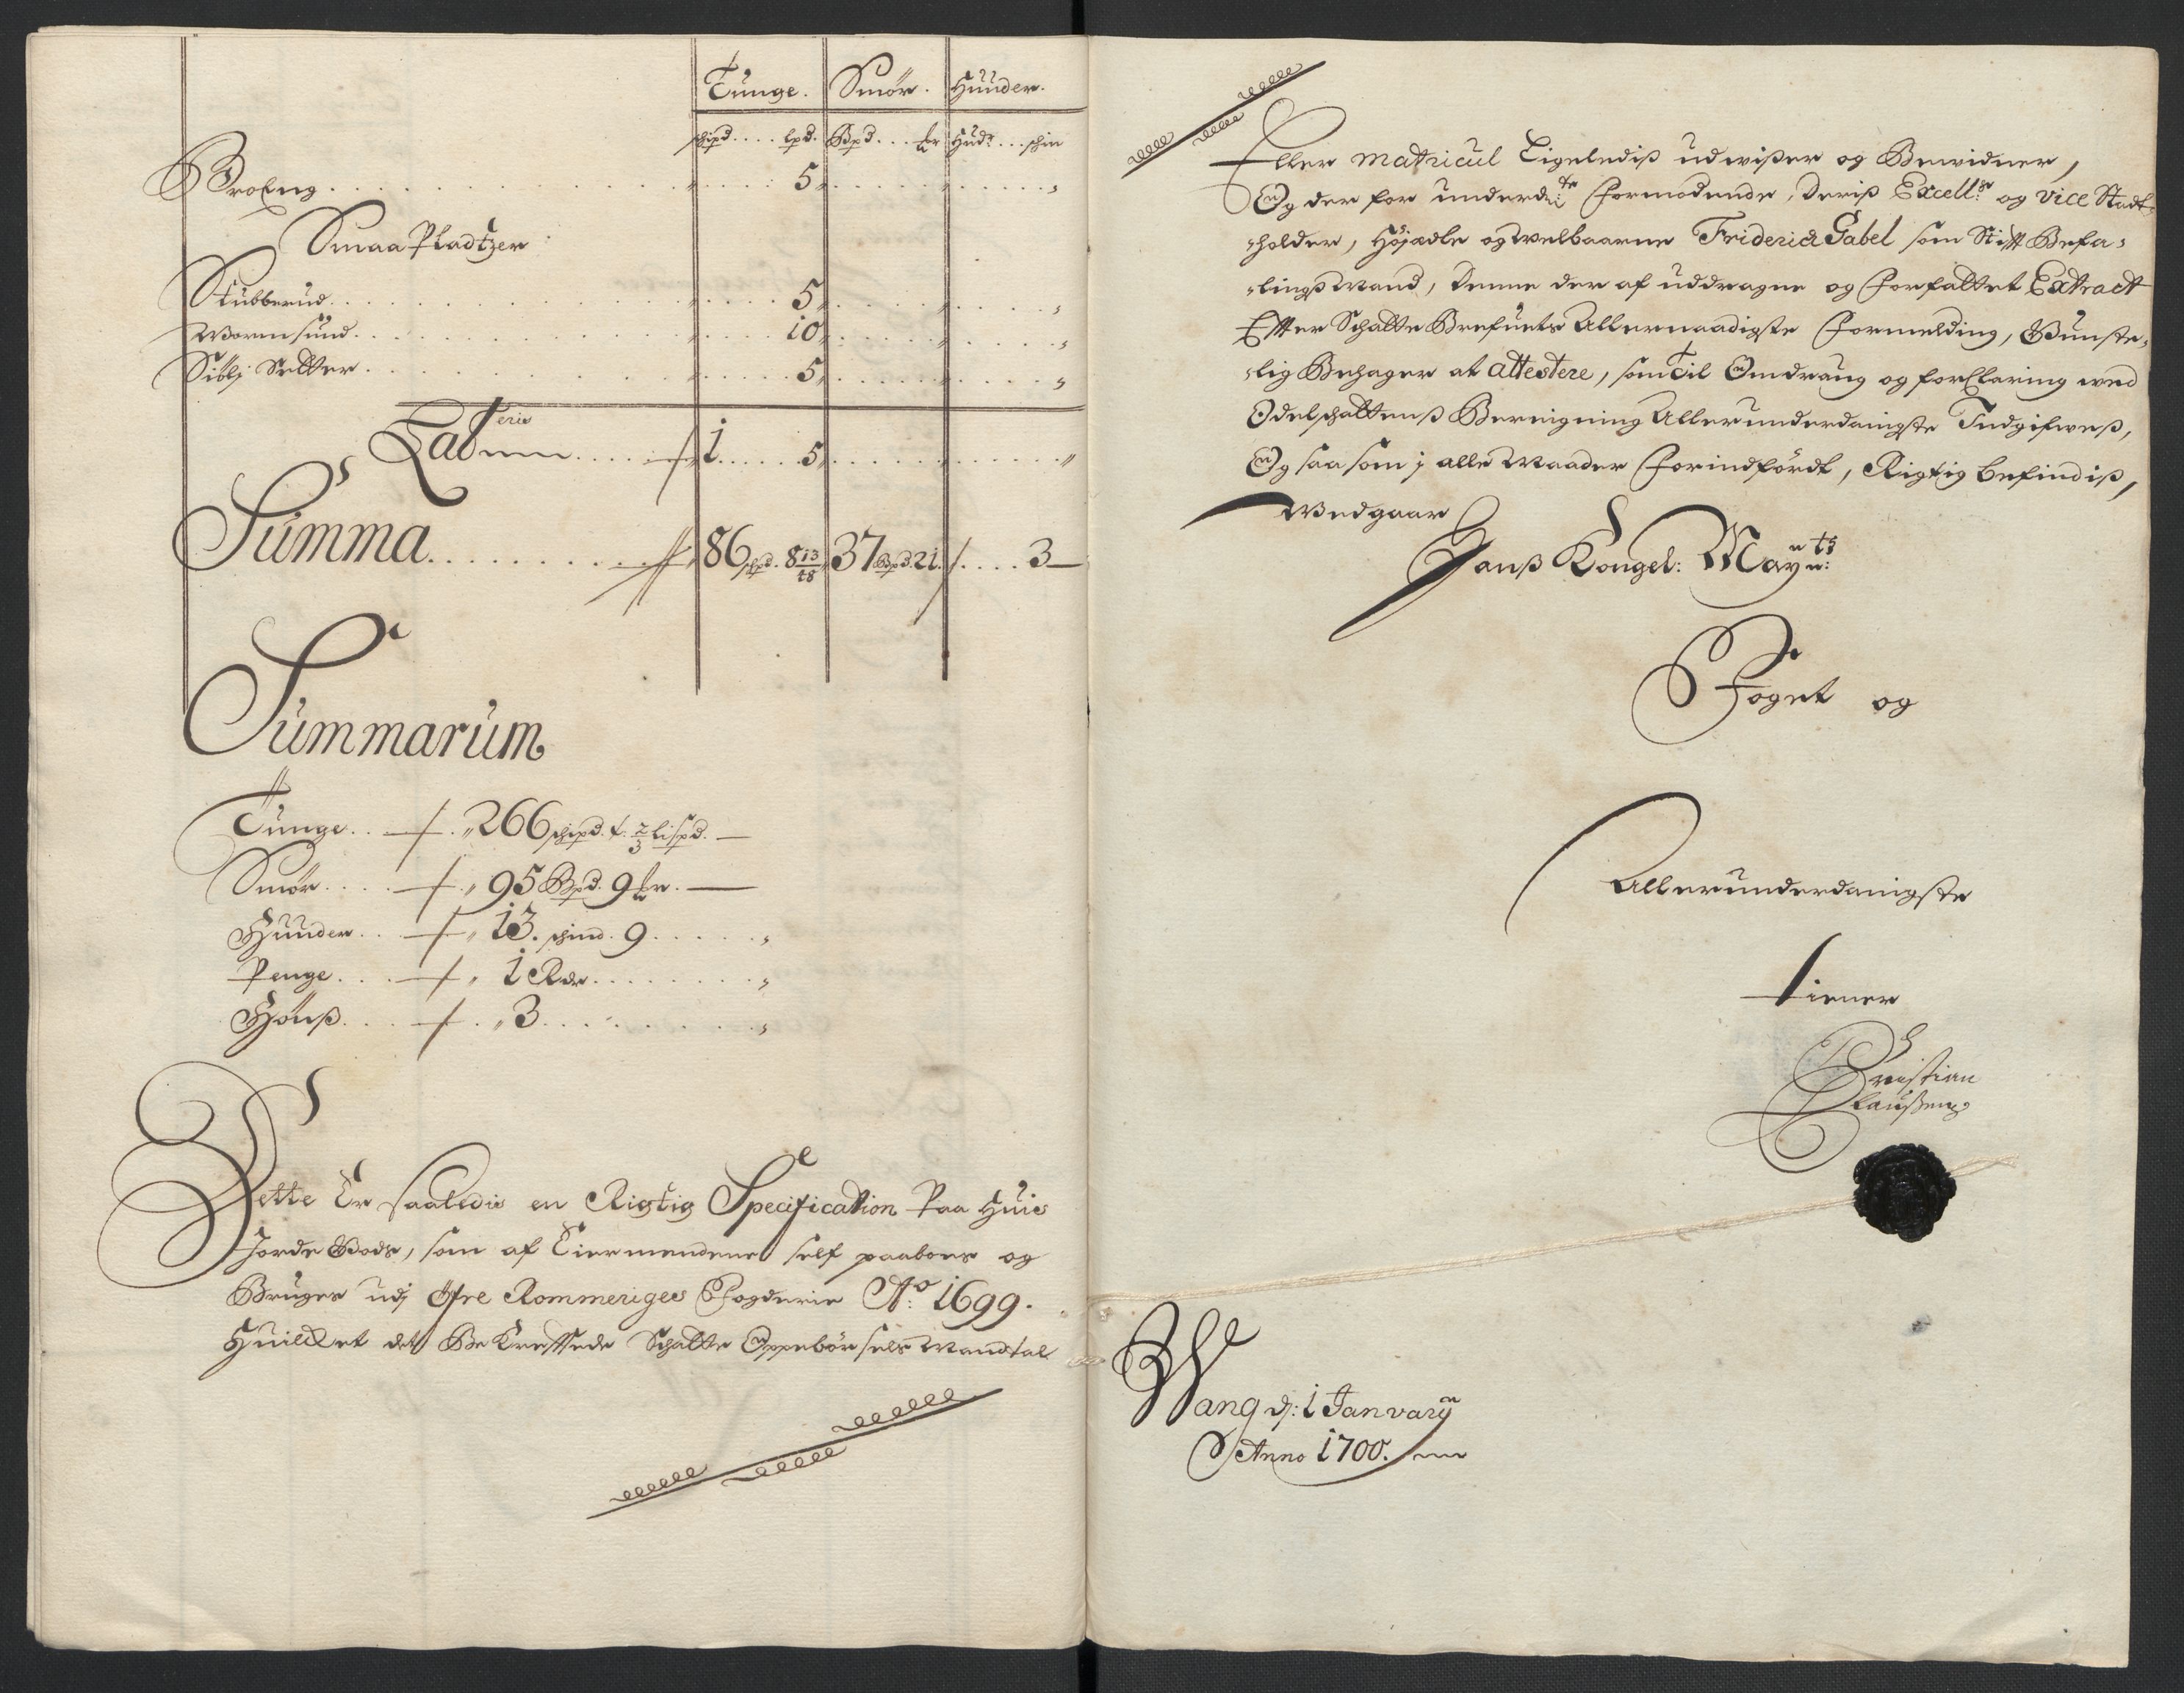 Tunge. Smör. Huuder.
schipd .... lpd. Bpd ... mr Hudr ... schin
BroEng . . . . . 5
Smaa Pladtzer
Stubberud . . . . . 5
Wormsund . . . . . 10
Siölj Setter . . . . . 5
Lateris
1 . . . . . 5
Summa . . . . . 86 schpd. 8 13/48 37 Bpd. 21. . . . . 3
Summarum
Tunge . . 266 schipd. 2/3 lispd.
Smör . . . . 95 Bpd. 9 mr.
Huuder . . 13. schind. 9 . . . . .
Penge . . . 1 Rdr . . . . .
Hönß . . . 3 . . . . .
Dette Er saaledis en Rigtig Specification Paa Huis
Jorde Gods, som af Eiermendene self paaboes og
Bruges udj Öfre Rommeriges Fogderie Ao: 1699.
Huilcket det Bekrefftede Schatte Oppebörsels Mandtal
Eller Matricul Ligeledis udwißer og Bewidner,
Og der for underd: formodende, Deris Excell: og Vice Stadt-
holder, Höjædle og Welbaarne Friderich Gabel som Stift Befa-
lingß Mand, Denne der af uddragne og forfattet Extract
Efter Schatte Brefuets Allernaadigste formelding, Gunste-
lig Behager at attestere, som til Omdraug og forklaring wed
Odelschattenß Beregning Allerunderdanigste Indgifweß,
Og saa som j alle Maader forindfördt, Rigtig befindiß,
Wedgaar
Hanß Kongel: Mayts:
Foget og
Allerunderdanigste
tiener
Christian
Claußen
Wang dj: 1 Januarij
Anno 1700.